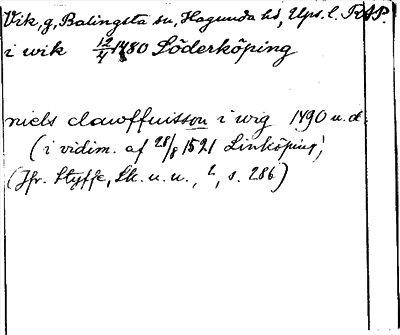 Vik, g, Balingsta sn, Hagunda hd, Ups. l. RAP.
i wik 12/4 1480 Söderköping
niels clawffuisson i wig 1490 u. d.
(i vidim. af 28/8 1521 Linköping)
(Jfr. Styffe, Sk. u. u., 2, s. 286)